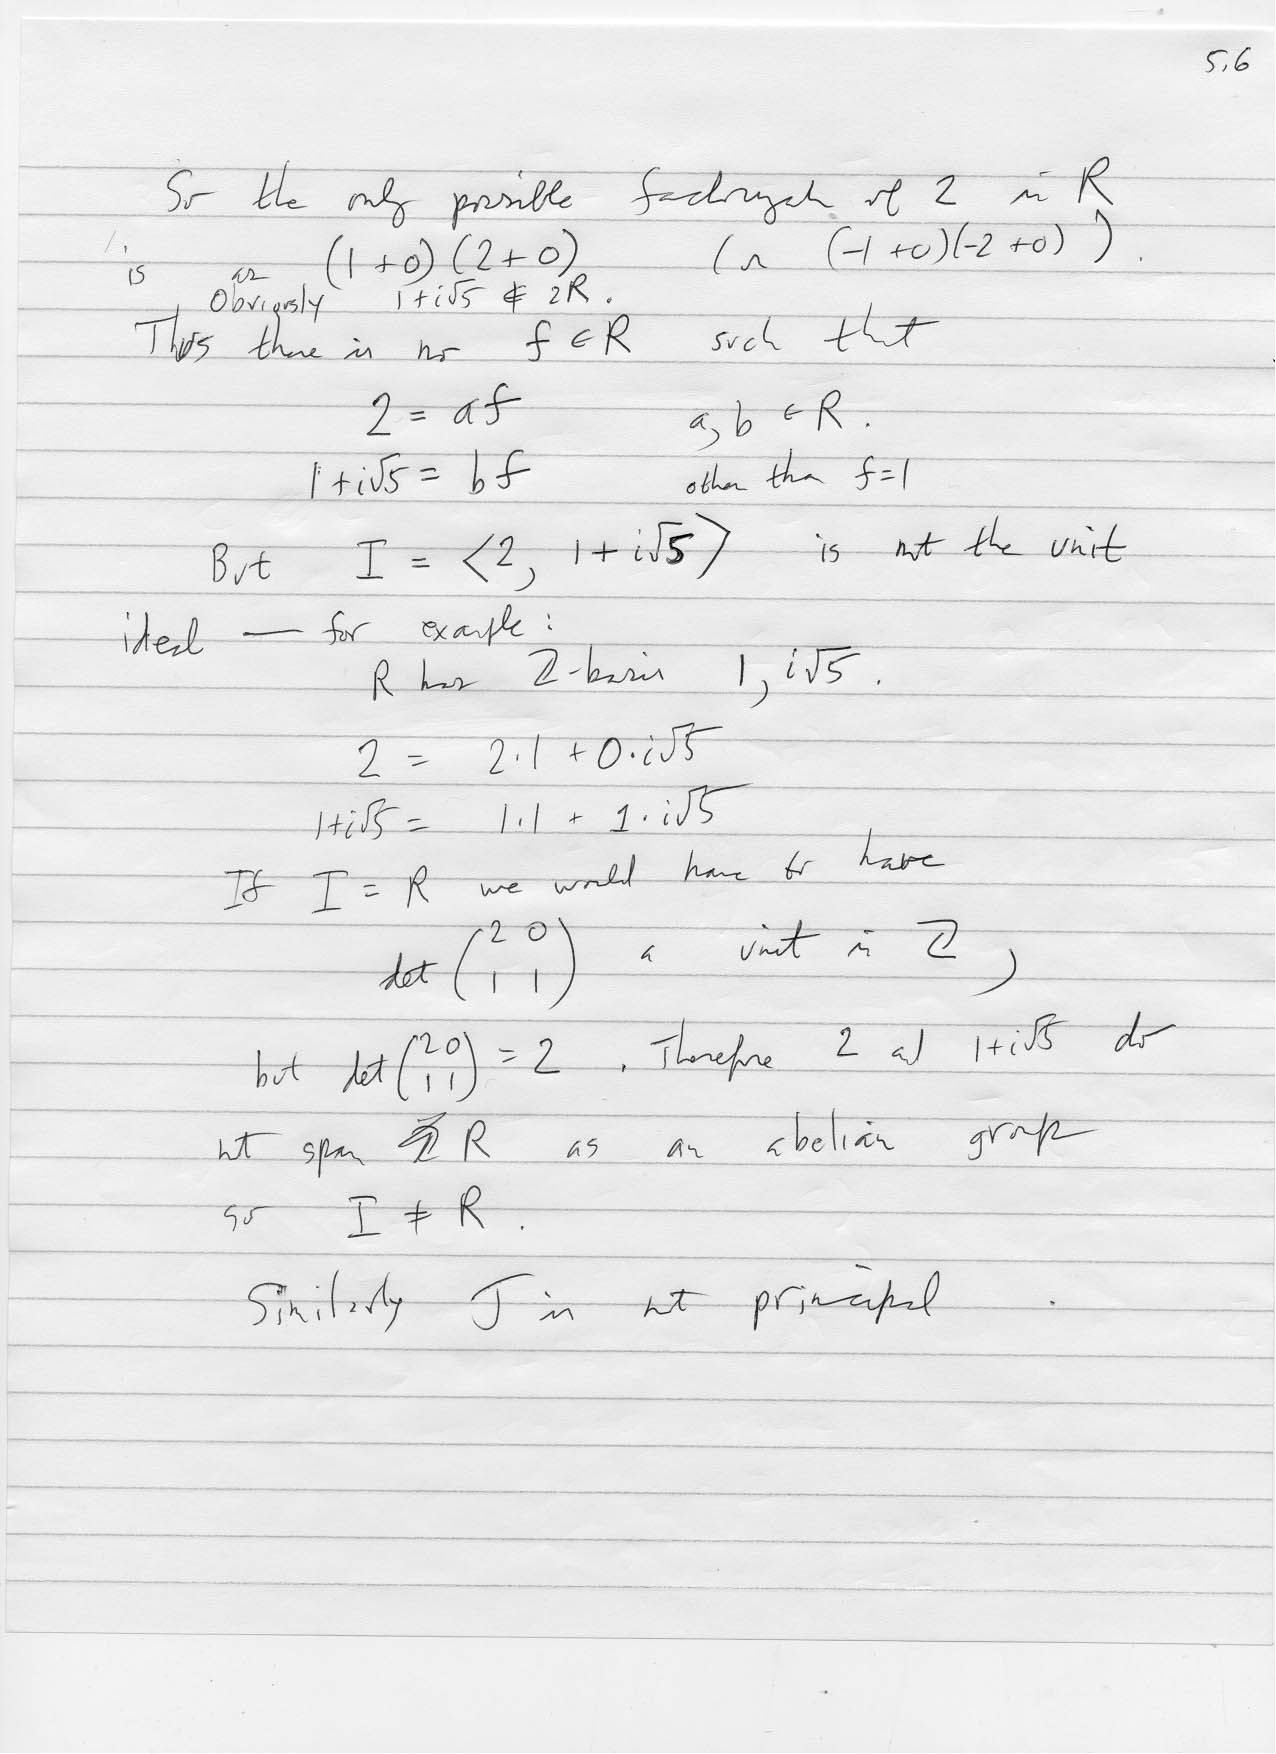 5.6
So the only possible factorizatn of 2 in R
is as (1+0)(2+0) (or (-1+0)(-2+0)).
Obviously 1+i√5 ∉ 2R.
Thus there is no f ∈ R such that
2 = af a, b ∈ R.
1+i√5 = bf other than f=1
But I = ⟨2, 1+i√5⟩ is not the unit
ideal — for example:
R has ℤ-basis 1, i√5.
2 = 2·1 + 0·i√5
1+i√5 = 1·1 + 1·i√5
If I = R we would have to have
det (2 0; 1 1) a unit in ℤ,
but det (2 0; 1 1) = 2. Therefore 2 and 1+i√5 do
not span R as an abelian group
so I ≠ R.
Similarly J is not principal.